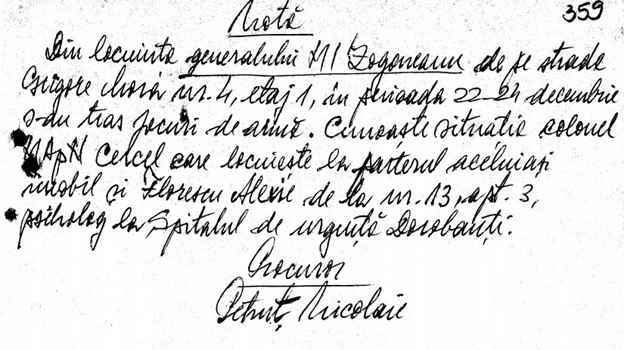 Notă
359
Din locuința generalului MI Zogoneanu de pe strada
Grigore Mora nr. 4, etaj 1, în perioada 22-24 decembrie
s-au tras focuri de armă. Cunoaște situația colonel
MApN Cercel care locuiește la parterul aceluiași
imobil și Florescu Alexie de la nr. 13, apt. 3,
psiholog la Spitalul de urgență Dorobanți.
Procuror
Petruț Nicolaie